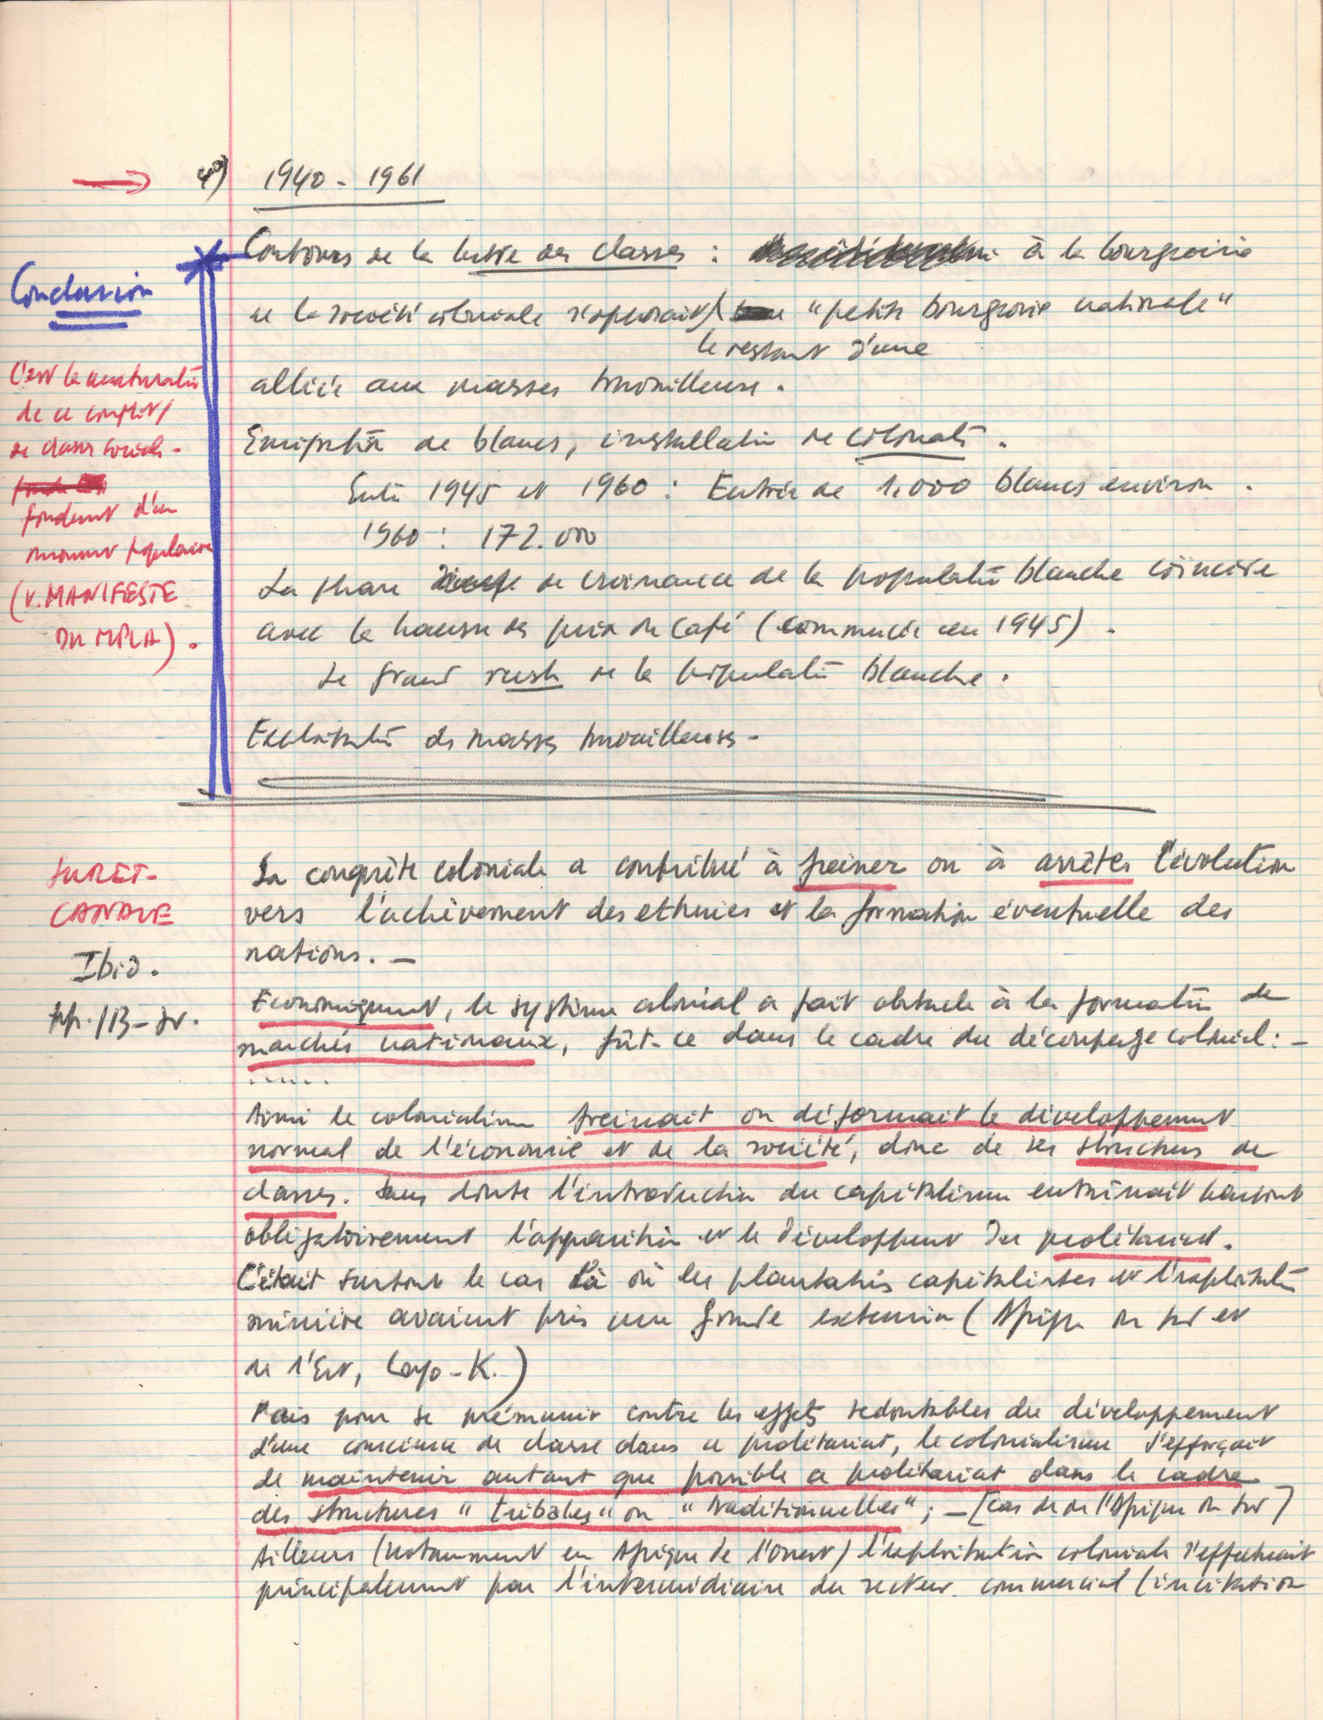 4º) 1940 - 1961
Contours de la lutte des classes : à la bourgeoisie
de la société coloniale s'opposait "petite bourgeoisie nationale"
le restant d'une
alliée aux masses travailleuses.
Conclusion
de blancs, installation de colonats.
Entre 1945 et 1960 : Entrée de 1.000 blancs environ.
1960 : 172.000
La phase de croissance de la population blanche coïncide
avec la hausse des prix du café (commencée en 1945).
Le grand rush de la population blanche.
Exploitation des masses travailleuses -
C'est la
de ce conflit
de classes sociales -
fondement d'un
mouvement populaire
(V. MANIFESTE
DU MPLA).
SURET-
CANALE
Ibid.
pp. 113 - sv.
La conquête coloniale a contribué à freiner ou à arrêter l'évolution
vers l'achèvement des ethnies et la formation éventuelle des
nations. -
Economiquement, le système colonial a fait obstacle à la formation de
marchés nationaux, fût-ce dans le cadre du découpage colonial : -
.....
Ainsi le colonialisme freinait ou déformait le développement
normal de l'économie et de la société, donc de ses structures de
classes. Sans doute l'introduction du capitalisme entraînait partout
obligatoirement l'apparition et le développement du prolétariat.
C'était surtout le cas là où les plantations capitalistes et l'exploitation
minière avaient pris une grande extension (Afrique du Sud et
de l'Est, Congo - K.)
Mais pour se prémunir contre les effets redoutables du développement
d'une conscience de classe dans ce prolétariat, le colonialisme s'efforçait
de maintenir autant que possible ce prolétariat dans le cadre
des structures "tribales" ou "traditionnelles" ; - [cas de l'Afrique du Sud]
Ailleurs (notamment en Afrique de l'Ouest) l'exploitation coloniale s'effectuait
principalement par l'intermédiaire du secteur commercial (incitation